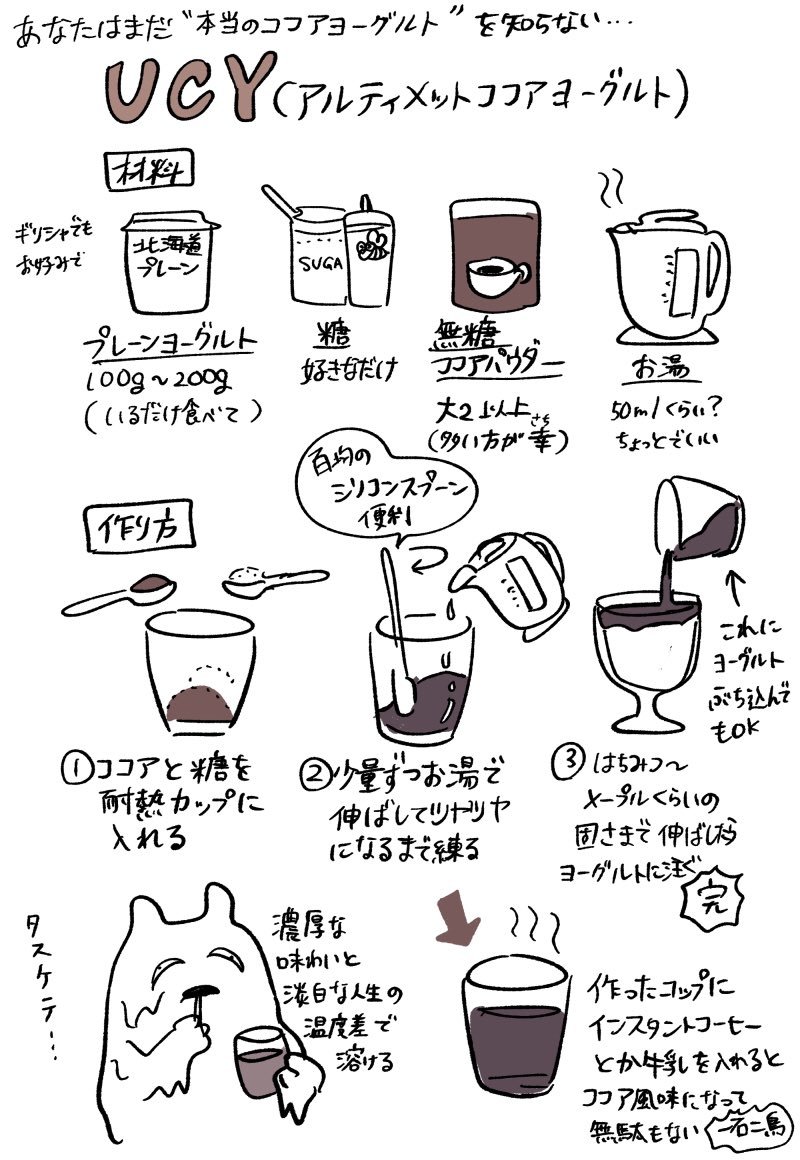 あなたはまだ“本当のココアヨーグルト”を知らない…
UCY(アルティメットココアヨーグルト)
材料
ギリシャでも
お好みで
北海道
プレーン
プレーンヨーグルト
100g～200g
(いるだけ食べて)
SUGA
糖
好きなだけ
無糖
ココアパウダー
大2以上
(多い方が幸)
さち
お湯
50mlくらい?
ちょっとでいい
作り方
百均の
シリコンスプーン
便利
①ココアと糖を
耐熱カップに
入れる
②少量ずつお湯で
伸ばしてツヤツヤ
になるまで練る
これに
ヨーグルト
ぶち込んで
もOK
③はちみつ～
メープルくらいの
固さまで伸ばしたら
ヨーグルトに注ぐ
完
タスケテ…
濃厚な
味わいと
淡白な人生の
温度差で
溶ける
作ったコップに
インスタントコーヒー
とか牛乳を入れると
ココア風味になって
無駄もない
一石二鳥